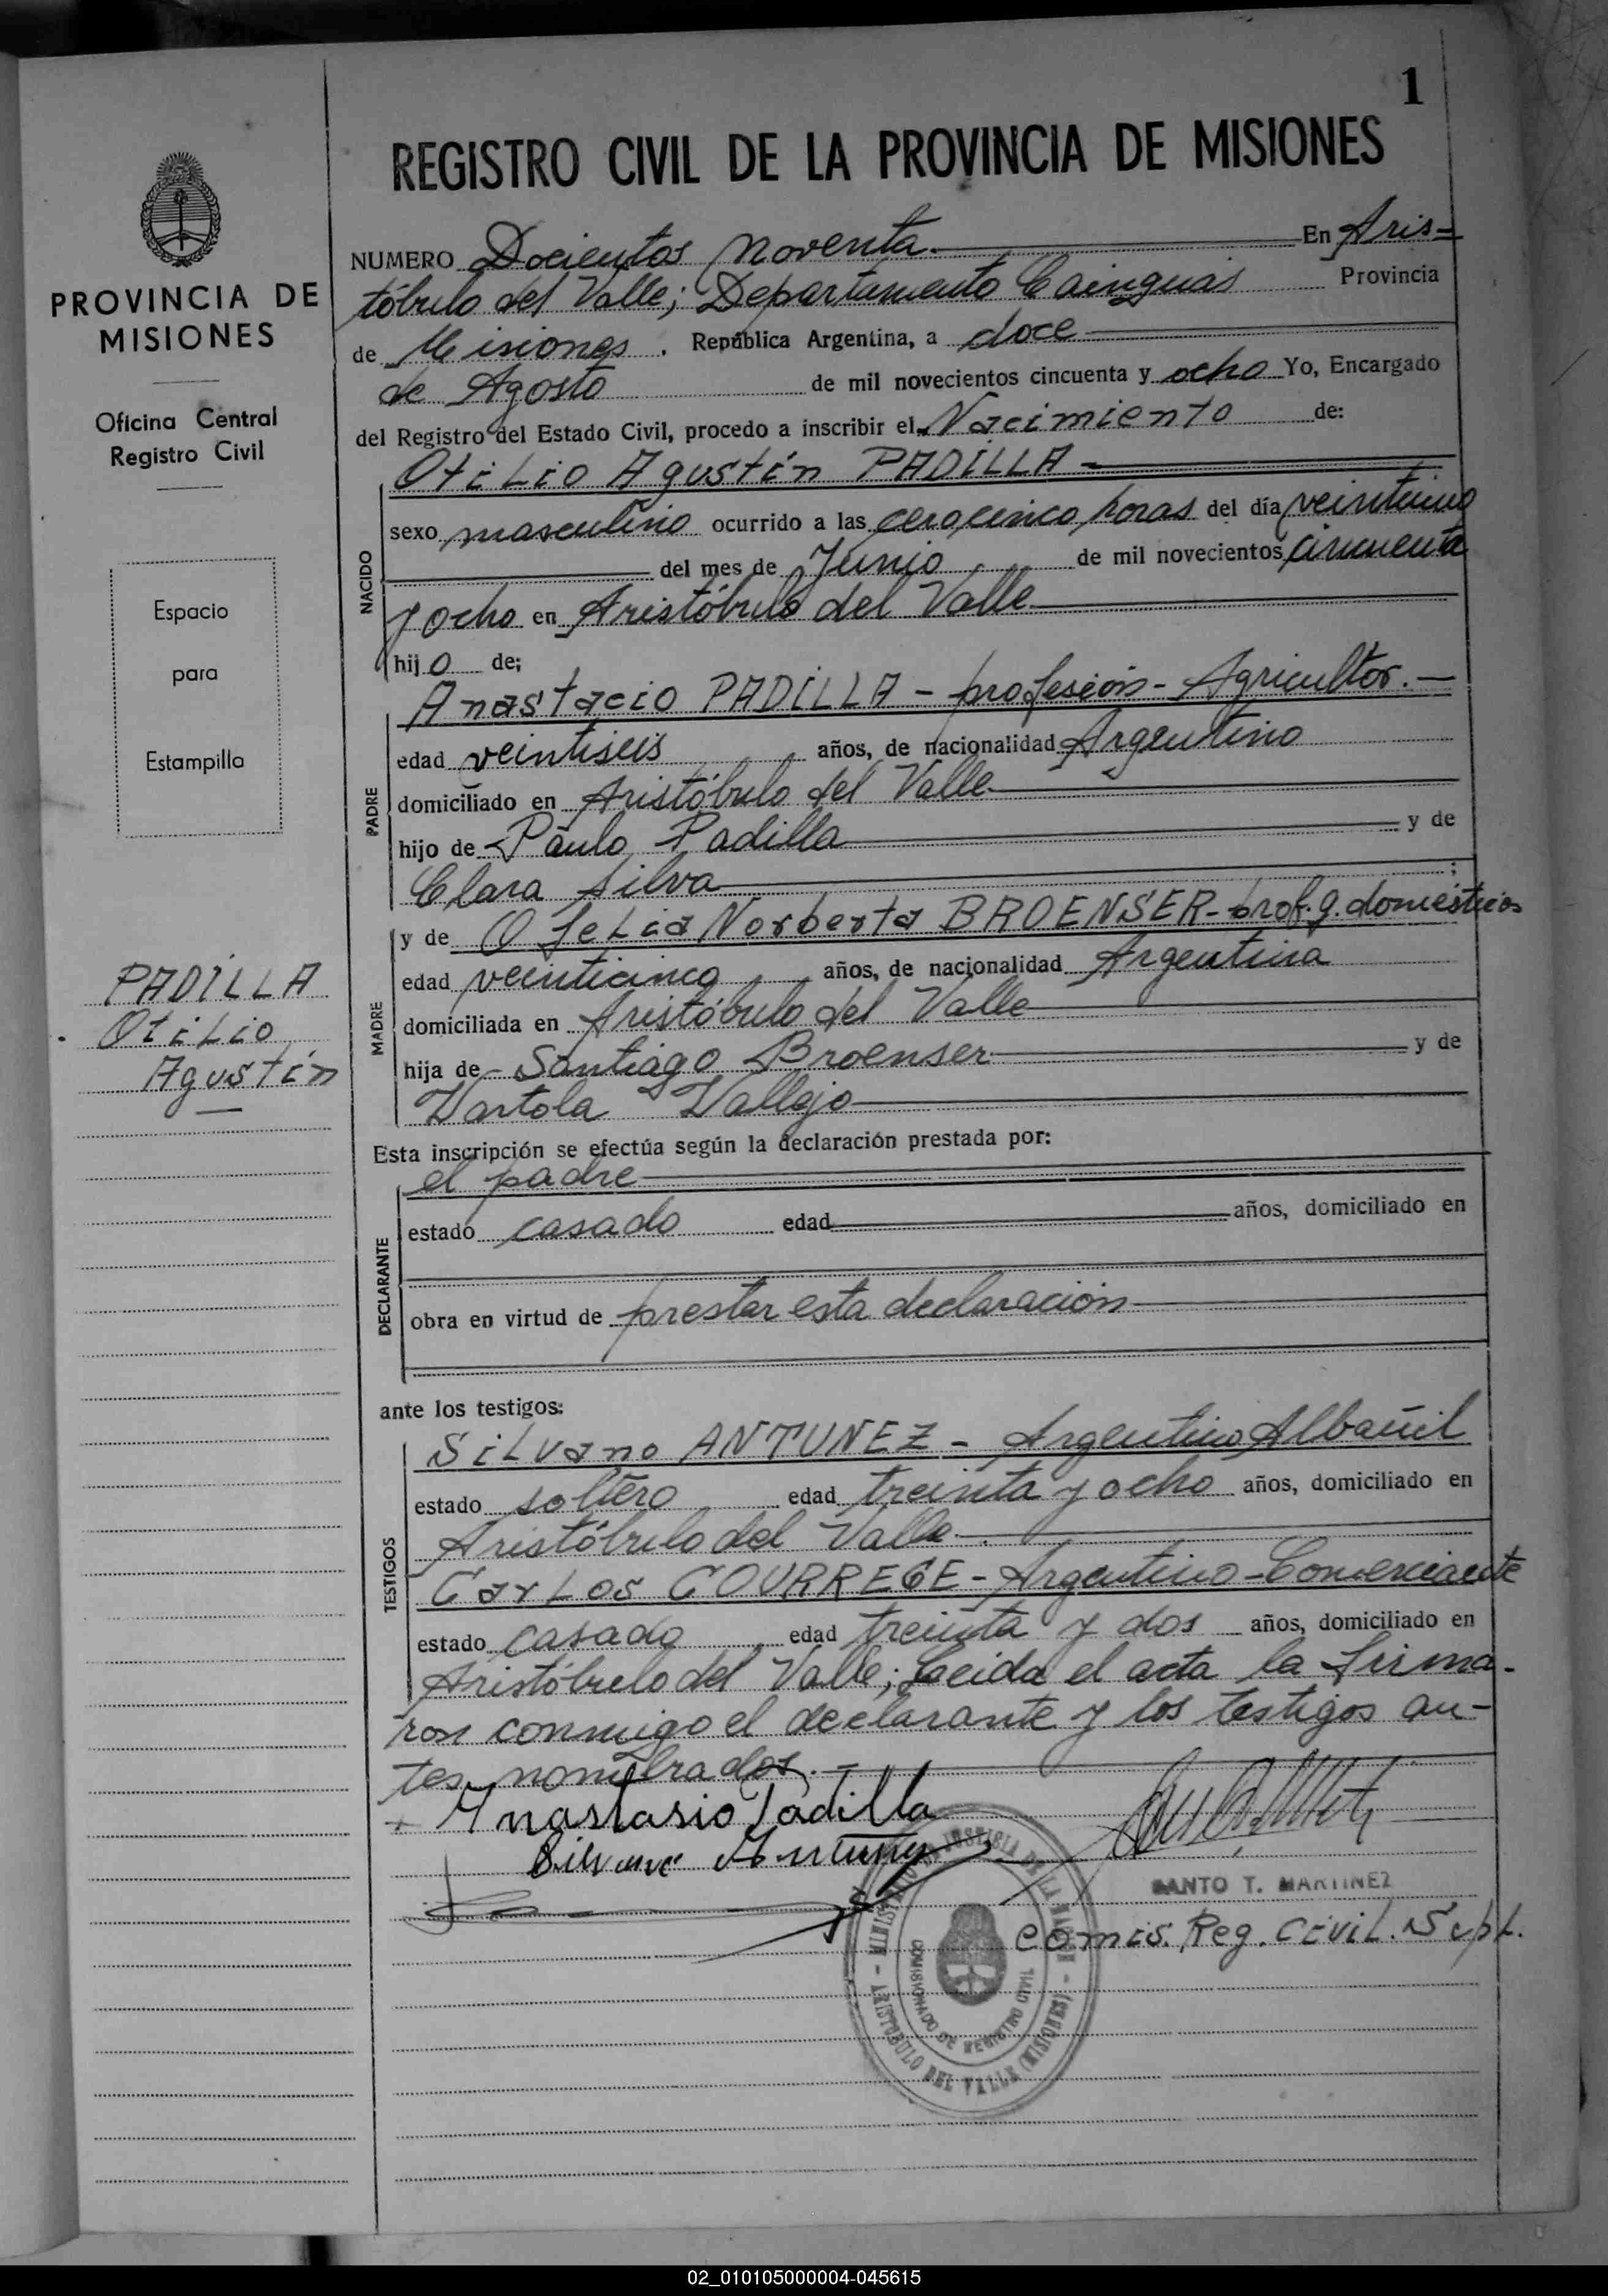 1
REGISTRO CIVIL DE LA PROVINCIA DE MISIONES
PROVINCIA DE
MISIONES
Oficina Central
Registro Civil
Espacio
para
Estampilla
PADILLA
Otilio
Agustín
NUMERO Docientos noventa.— En Aris=
tóbulo del Valle; Departamento Cainguas Provincia
de Misiones. República Argentina, a doce
de Agosto de mil novecientos cincuenta y ocho Yo, Encargado
del Registro del Estado Civil, procedo a inscribir el Nacimiento de:
Otilio Agustín PADILLA —
NACIDO
sexo masculino ocurrido a las cero cinco horas del día veintiuno
del mes de Junio de mil novecientos cincuenta
y ocho en Aristóbulo del Valle
hijo de;
Anastacio PADILLA - profesión - Agricultor.—
PADRE
edad veintiseis años, de nacionalidad Argentino
domiciliado en Aristóbulo del Valle
hijo de Paulo Padilla y de
Clara Silva ;
y de Ofelia Norberta BROENSER - prof. q. domésticos
MADRE
edad veinticinco años, de nacionalidad Argentina
domiciliada en Aristóbulo del Valle
hija de Santiago Broenser y de
Vartola Vallejo
Esta inscripción se efectúa según la declaración prestada por:
el padre
DECLARANTE
estado casado edad años, domiciliado en
obra en virtud de prestar esta declaración
ante los testigos:
Silvano ANTUNEZ - Argentino, Albañil
TESTIGOS
estado soltero edad treinta y ocho años, domiciliado en
Aristóbulo del Valle.
Carlos COURREGE - Argentino - Comerciante
estado casado edad treinta y dos años, domiciliado en
Aristóbulo del Valle; Leida el acta la firma-
ron conmigo el declarante y los testigos an-
tes nombrados.—
Anastasio Padilla
Silvano Antunez
SANTO T. MARTINEZ
Comis. Reg. Civil. Supl.
JUSTICIA DE LA
ARISTOBULO DEL VALLE (MISIONES)
COMISIONADO DE REGISTRO CIVIL
02_010105000004-045615